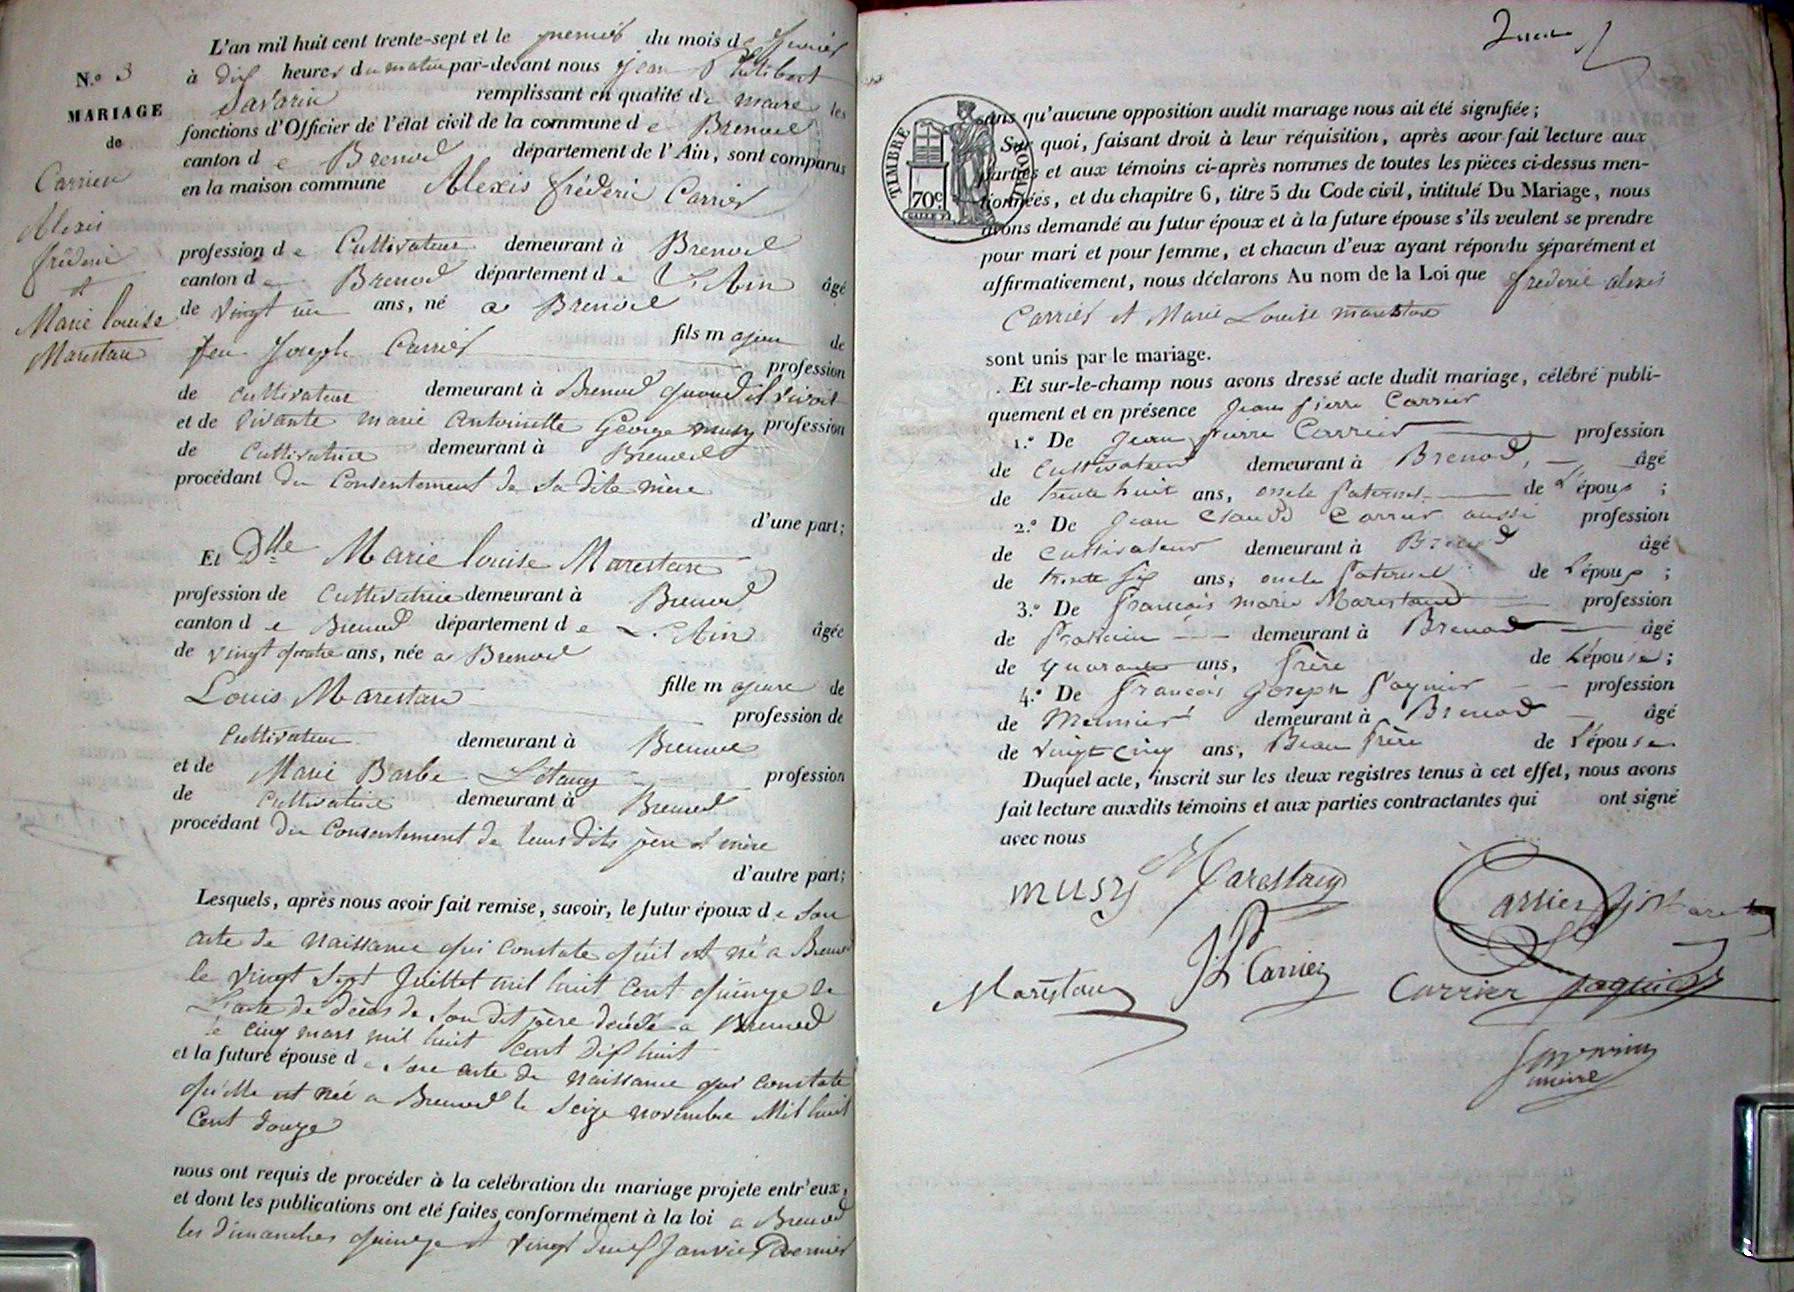 N.o 3
MARIAGE
de
Carrier
Alexis
frédéric
et
Marie Louise
Marestan
L'an mil huit cent trente-sept et le premier du mois de fevrier
à dix heures du matin par-devant nous jean Philibert
Savarin remplissant en qualité de maire les
fonctions d'Officier de l'état civil de la commune de Brenod
canton de Brenod département de l'Ain, sont comparus
en la maison commune Alexis frédéric Carrier
profession de Cultivateur demeurant à Brenod
canton de Brenod département de L'Ain âgé
de vingt un ans, né a Brenod
fils majeur de
feu Joseph Carrier profession
de cultivateur demeurant à Brenod quand il vivait
et de vivante marie antoinette George musy profession
de Cultivatrice demeurant à Brenod
procédant du Consentement de sa dite mère
d'une part;
Et Dlle Marie louise Marestan
profession de Cultivatrice demeurant à Brenod
canton de Brenod département de L'Ain âgée
de vingt quatre ans, née a Brenod
fille majeure de
Louis Marestan profession de
Cultivateur demeurant à Brenod
et de Marie Barbe profession
de Cultivatrice demeurant à Brenod
procédant du Consentement de leurs dits père et mère
d'autre part;
Lesquels, après nous avoir fait remise, savoir, le futur époux de son
acte de naissance qui constate qu'il est né a Brenod
le vingt sept Juillet mil huit cent quinze de
L'acte de décès de son dit père décédé a Brenod
le cinq mars mil huit cent dix huit
et la future épouse de son acte de naissance qui constate
qu'elle est née a Brenod le seize novembre Mil huit
Cent douze
nous ont requis de procéder à la celébration du mariage projete entr'eux,
et dont les publications ont eté faites conformément à la loi a Brenod
les dimanches quinze et vingt deux Janvier dernier
TIMBRE ROYAL
70c
sans qu'aucune opposition audit mariage nous ait été signifiée;
Sur quoi, faisant droit à leur réquisition, après avoir fait lecture aux
parties et aux témoins ci-après nommes de toutes les pièces ci-dessus men-
tionnées, et du chapitre 6, titre 5 du Code civil, intitulé Du Mariage, nous
avons demandé au futur époux et à la future épouse s'ils veulent se prendre
pour mari et pour femme, et chacun d'eux ayant répondu séparément et
affirmativement, nous déclarons Au nom de la Loi que frédéric alexis
Carrier et Marie Louise marestan
sont unis par le mariage.
Et sur-le-champ nous avons dressé acte dudit mariage, célébré publi-
quement et en présence Jean pierre Carrier
1.o De Jean pierre Carrier profession
de cultivateur demeurant à Brenod, âgé
de trente huit ans, oncle paternel de L'époux;
2.o De Jean Claude Carrier aussi profession
de cultivateur demeurant à Brenod âgé
de trente six ans, oncle paternel de L'époux;
3.o De françois marie Marestand profession
de demeurant à Brenod âgé
de quarante ans, frère de L'épouse;
4.o De françois joseph paquier profession
de Meunier demeurant à Brenod âgé
de vingt cinq ans, Beau frère de L'épouse
Duquel acte, inscrit sur les deux registres tenus à cet effet, nous avons
fait lecture auxdits témoins et aux parties contractantes qui ont signé
avec nous
musy Marestan Carrier
Marestan J.P. Carrier Carrier paquier
Savarin
maire